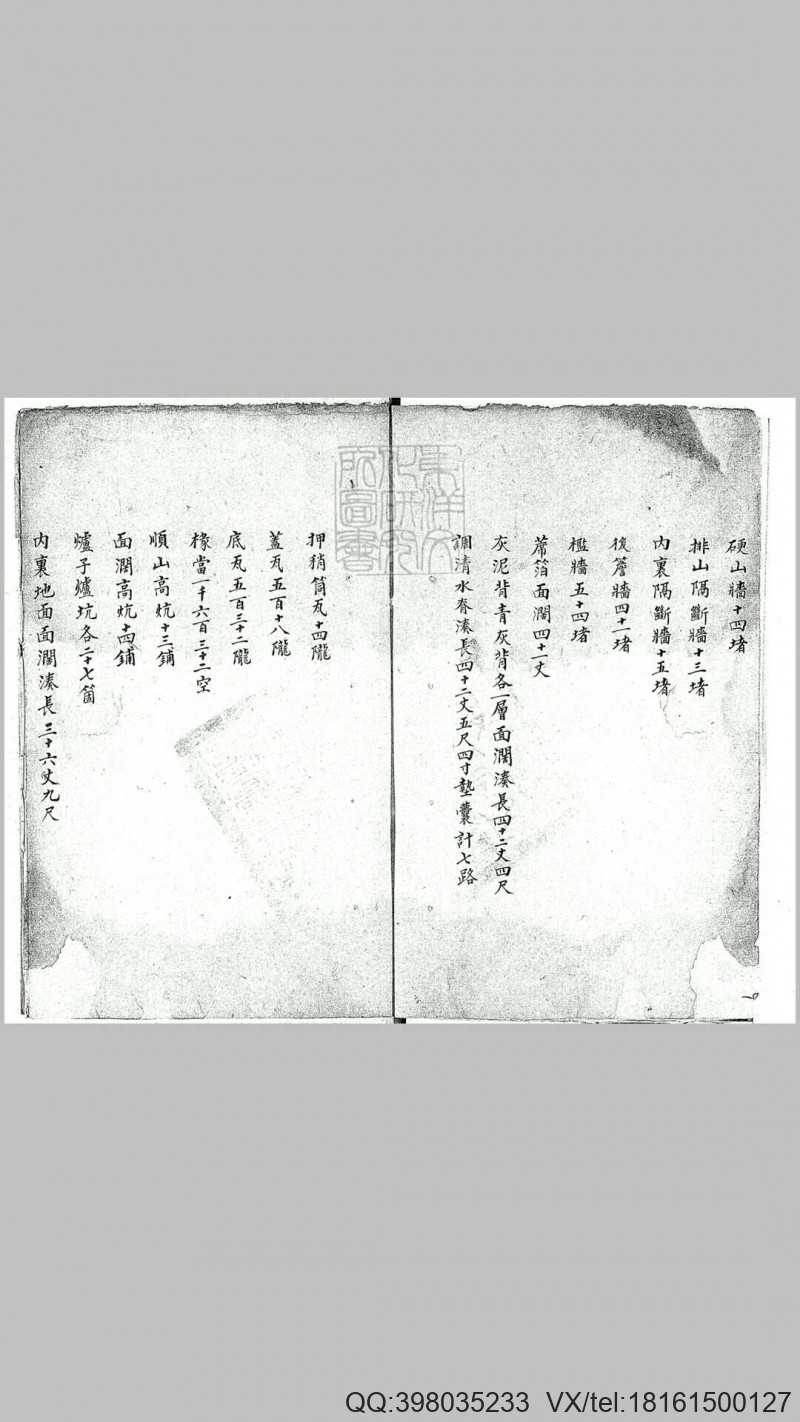 硬山牆十四堵
排山隔斷牆十三堵
內裏隔斷牆十五堵
後簷牆四十一堵
檻牆五十四堵
蓆箔面濶四十一丈
灰泥背青灰背各一層面濶湊長四十二丈四尺
調清水脊湊長四十二丈五尺四寸墊囊計七路
押稍筒瓦十四隴
蓋瓦五百十八隴
底瓦五百三十二隴
椽當一千六百三十二空
順山高炕十三鋪
面濶高炕十四鋪
爐子爐坑各二十七箇
內裏地面面濶湊長三十六丈九尺
東洋文
化研究
所圖書
QQ:398035233 VX/tel:18161500127